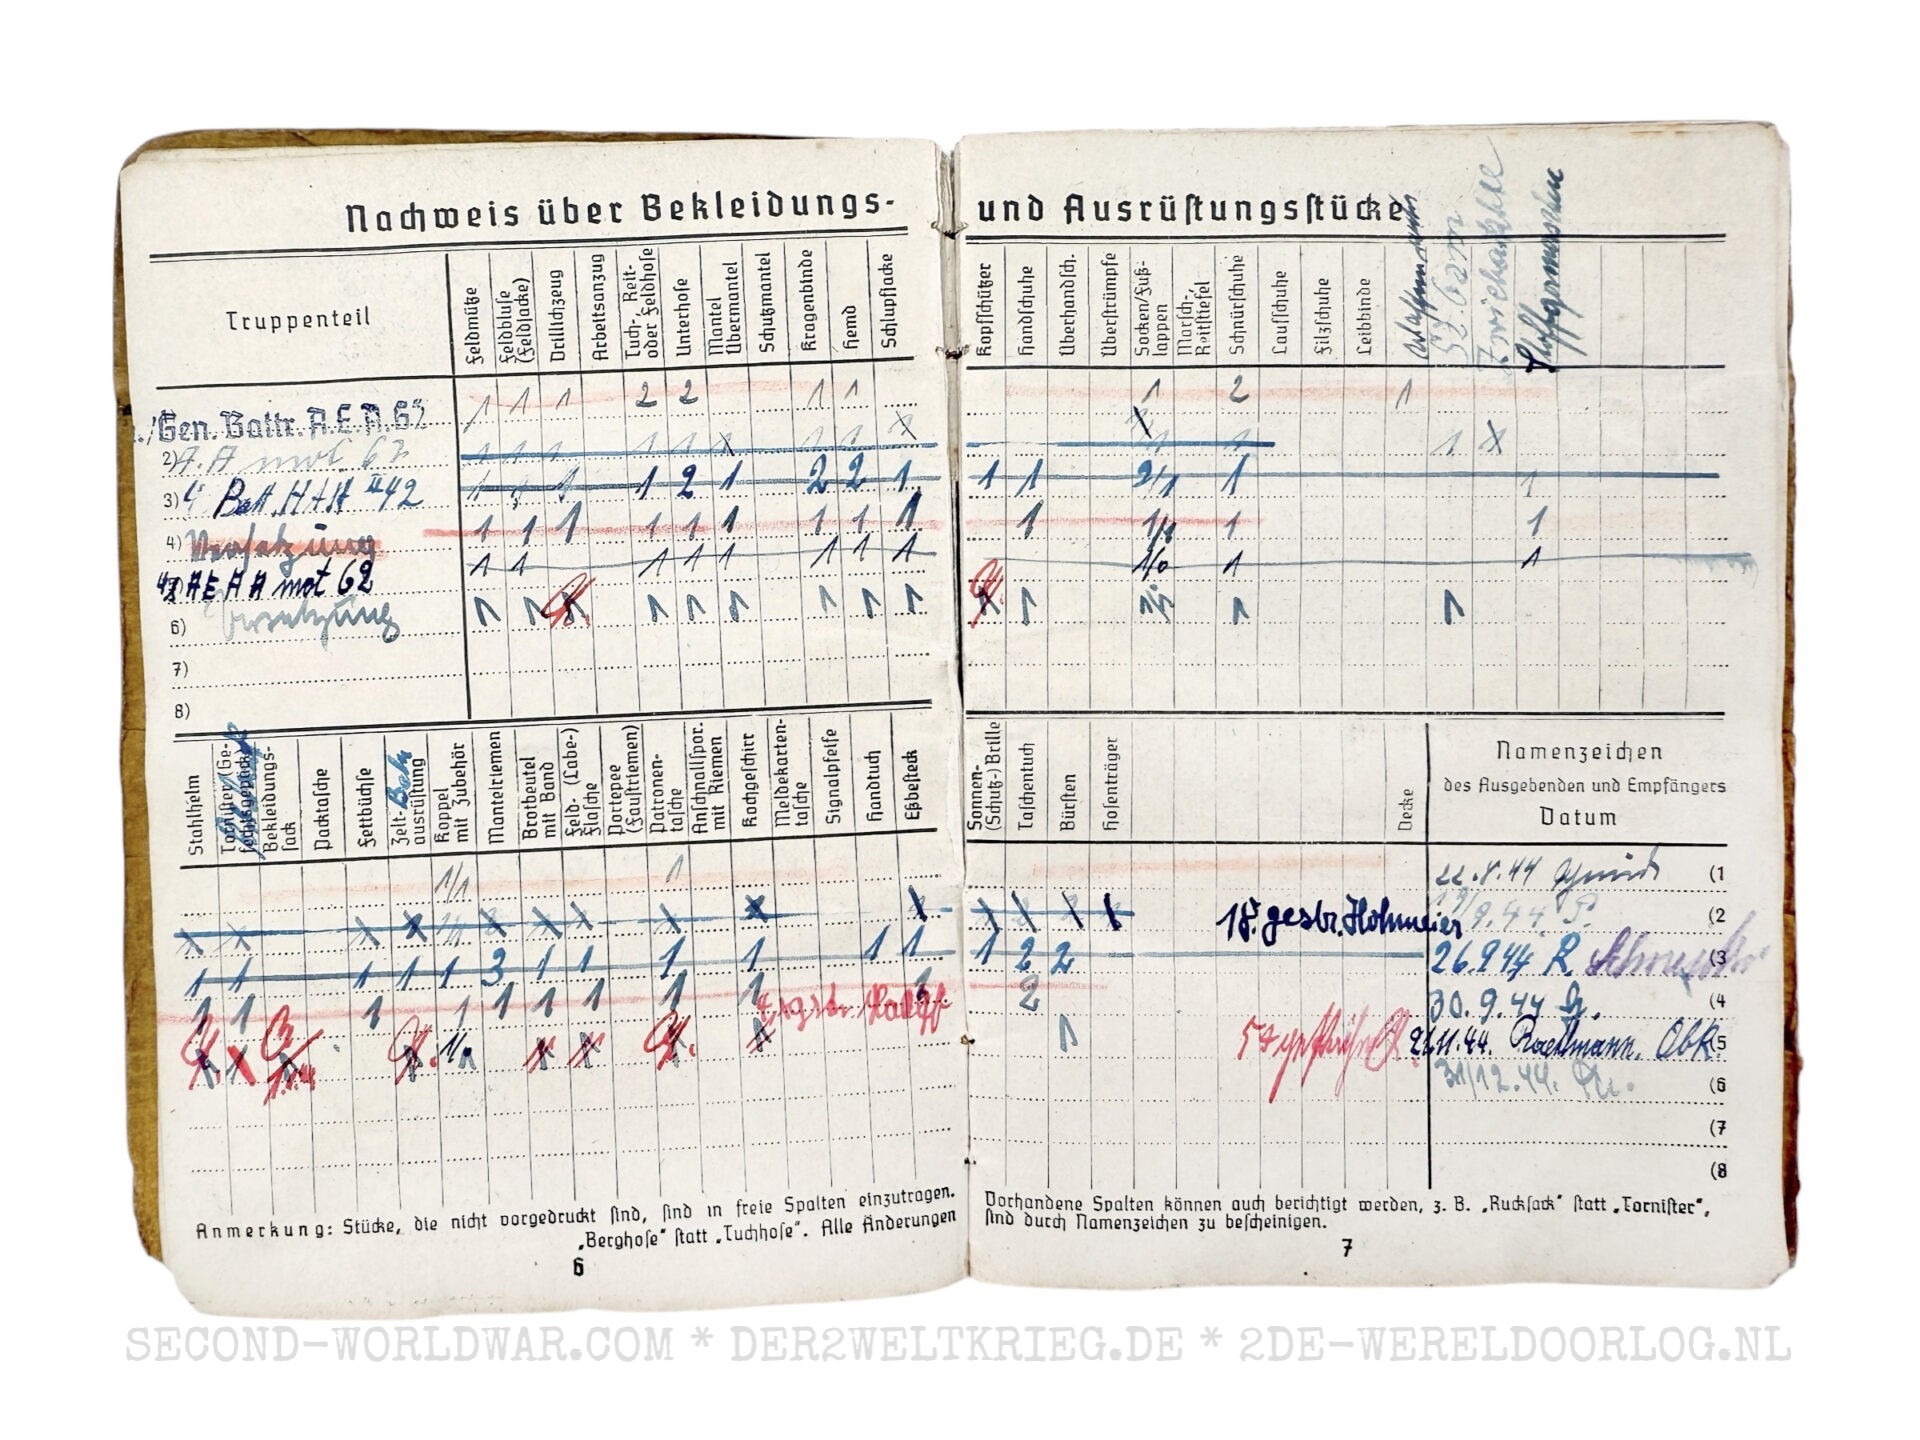 Nachweis über Bekleidungs- und Ausrüstungsstücke
Truppenteil
Feldmütze
Feldbluse (Feldjacke)
Drillichzeug
Arbeitsanzug
Tuch-, Reit- oder Feldhose
Unterhose
Mantel Übermantel
Schutzmantel
Kragenbinde
Hemd
Schlupfjacke
Kopfschützer
Handschuhe
Überhandsch.
Überstrümpfe
Socken/Fuß-lappen
Marsch-, Reitstiefel
Schnürschuhe
Laufschuhe
Filzschuhe
Leibbinde
Gen. Battr. A.E.A. 62 1 1 1 2 2 1 1 1 2 1
2) A.A mot. 62
3) 4. Batt. H A A II 42 1 1 1 1 2 1 2 2 1 1 1 2/1 1 1
4) Versetzung 1 1 1 1 1 1 1 1 1 1 1 1
A E A A mot 62 1 1 1 1 1 1 1 1 1/0 1 1
6) Versetzung 1 1 1 1 1 1 1 1 1 1 1
7)
8)
Stahlhelm
Tornister (Ge-fechtsgepäck)
Bekleidungs-sack
Packtasche
Fettbüchse
Zelt-ausrüstung
Bahn
Koppel mit Zubehör
Mantelriemen
Brotbeutel mit Band
Feld- (Labe-) flasche
Portepee (Faustriemen)
Patronen-tasche
Anschnallspor. mit Riemen
Kochgeschirr
Meldekarten-tasche
Signalpfeife
Handtuch
Eßbesteck
Sonnen- (Schutz-) Brille
Taschentuch
Bürsten
Hosenträger
Decke
Namenzeichen
des Ausgebenden und Empfängers
Datum
1/1 1 22.8.44 (1
18. gestr. Hohmeier 9.44 (2
1 1 1 1 1 3 1 1 1 1 1 1 1 2 2 26.9.44 R. (3
1 1 1 1 1 1 1 1 1 2 30.9.44 (4
1 11.44. Obk. (5
31/12.44. (6
(7
(8
Anmerkung: Stücke, die nicht vorgedruckt sind, sind in freie Spalten einzutragen. Vorhandene Spalten können auch berichtigt werden, z. B. „Rucksack“ statt „Tornister“,
„Berghose“ statt „Tuchhose“. Alle Änderungen sind durch Namenzeichen zu bescheinigen.
6
7
SECOND-WORLDWAR.COM * DER2WELTKRIEG.DE * 2DE-WERELDOORLOG.NL